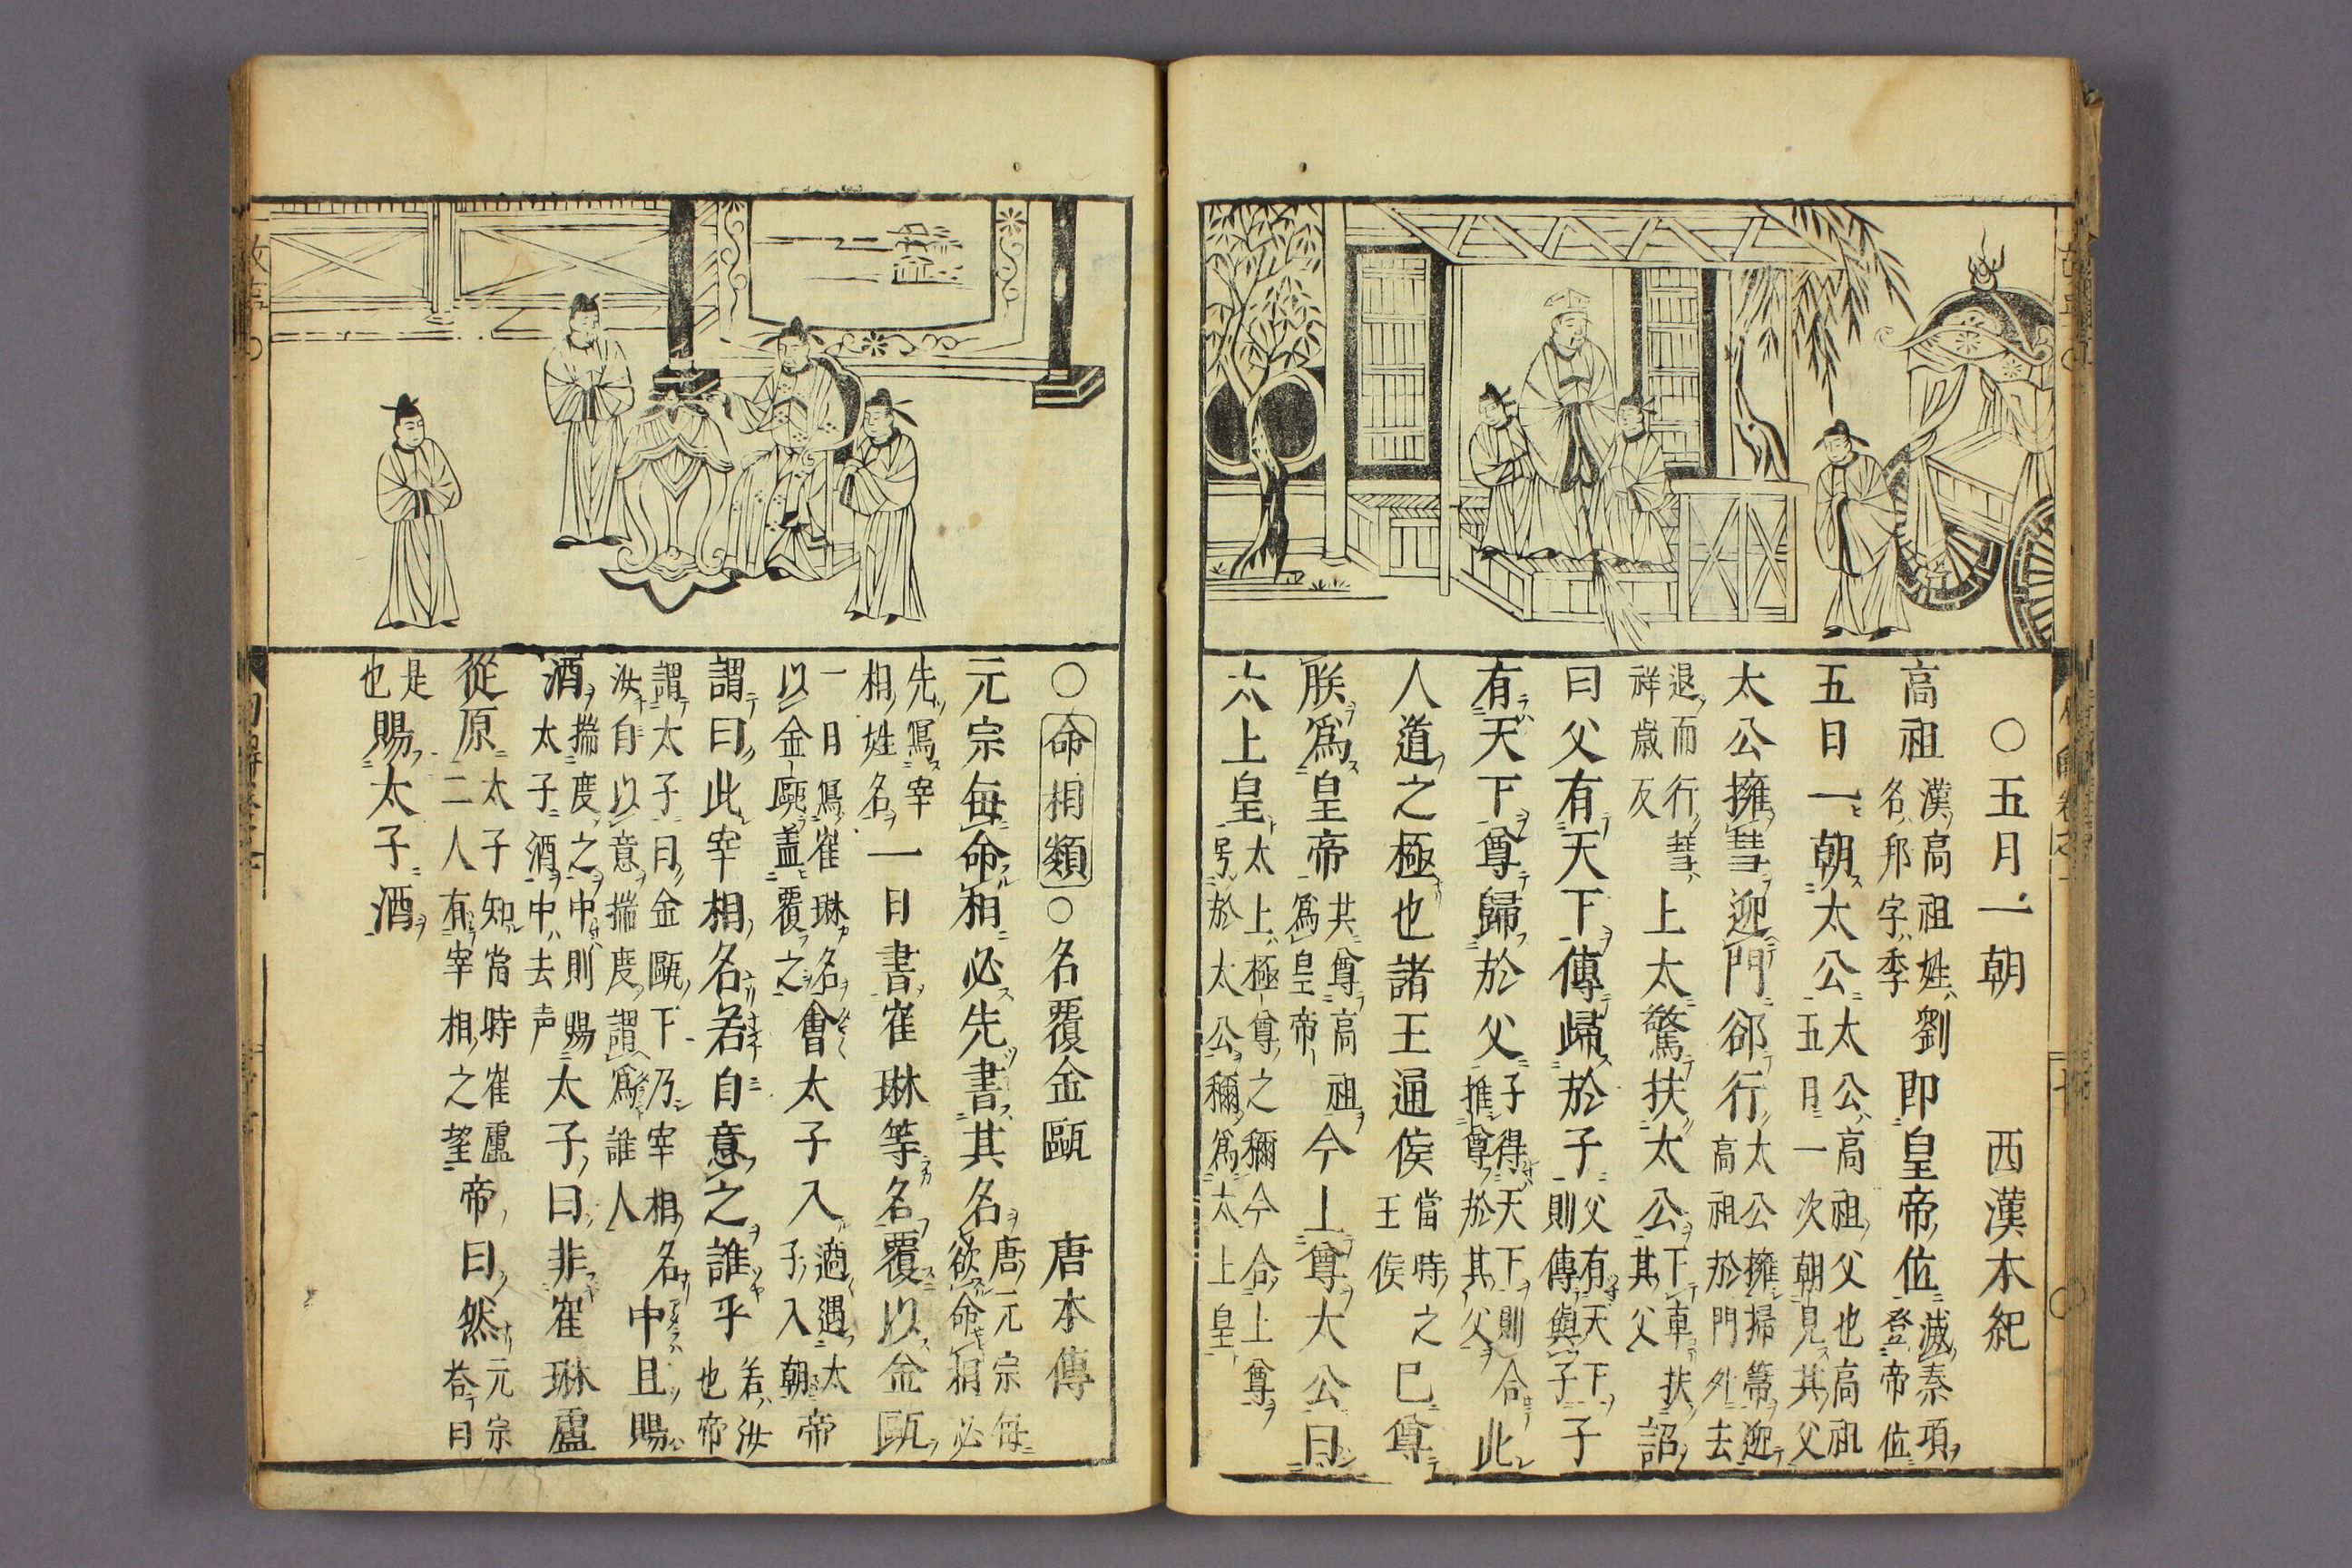 〇五月一朝　西漢本紀
高祖漢高祖姓劉名邦字季即皇帝位滅秦項登帝位
五日一朝太公太公高祖父也高祖五日一次朝見其父
太公擁彗迎門郤行太公擁掃箒迎高祖於門外去
退而行彗祥歳反上太驚扶太公下車扶其父詔
曰父有天下傳歸於子父有天下則傳與子子
有天下尊歸於父子得天下則合推尊於其父此
人道之極也諸王通侯當時之王侯已尊
朕爲皇帝共尊高祖爲皇帝今上尊太公曰
太上皇太上極尊之稱今合上尊号於太公稱爲太上皇
〇命相類〇名覆金甌　唐本傳
元宗每命相必先書其名唐元宗每欲命相必
先寫宰相姓名一日書崔琳等名覆以金甌
一日寫崔琳名以金甌盖覆之會太子入適遇太子入朝帝
謂曰此宰相名若自意之誰乎若汝也帝
謂太子曰金甌下乃宰相名汝自以意揣度謂爲誰人中且賜
酒揣度之中則賜太子酒中去声太子曰非崔琳盧
從原太子知當時崔盧二人有宰相之望帝曰然元宗荅曰
是也賜太子酒